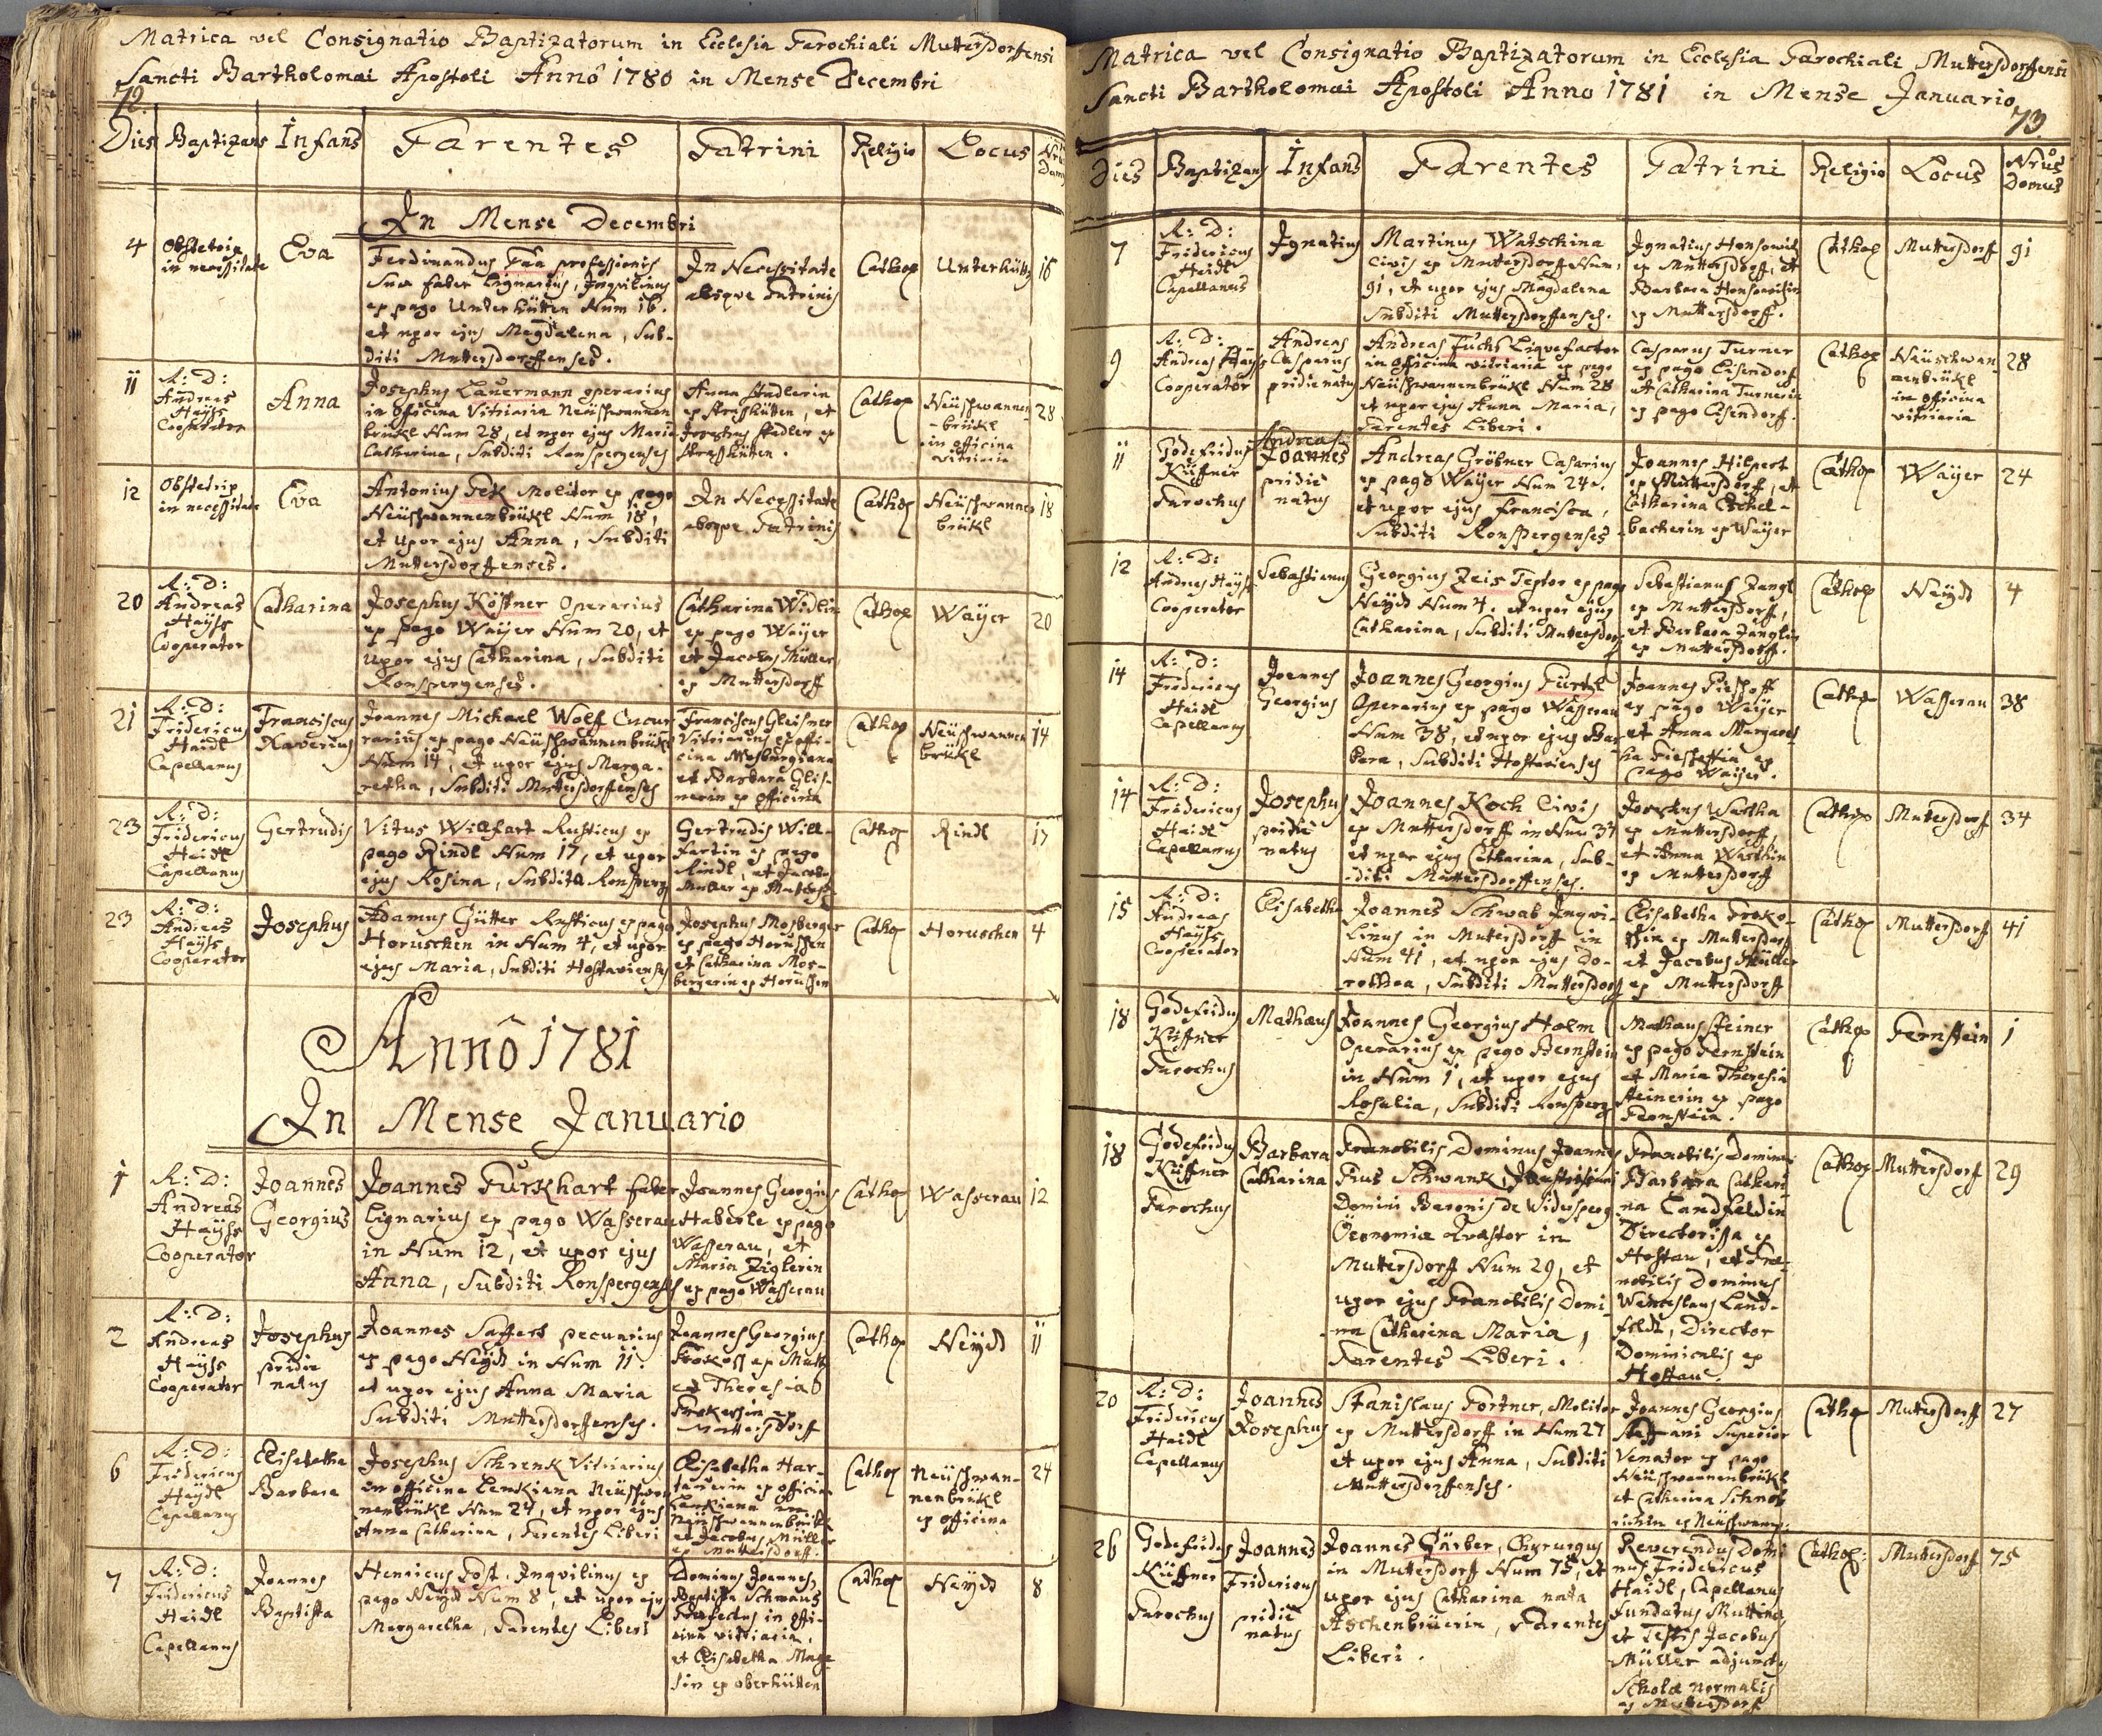 Matrica vel Consignatio Baptizatorum in Ecclesia Parochiali Muttersdorffensi
Sancti Bartholomæi Apostoli Annô 1780 in Mense Decembri
72.
Dies Baptizans Infans Parentes Patrini Religio Locus Nrus Dom
In Mense Decembri
4
Obstetrix
in necessitate
Eva
Ferdinandus Faa professionis
suæ faber lignarius, Inqvilinus
ex pago Unterhütten Num 16.
et uxor ejus Magdalena, Sub-
diti Muttersdorffenses.
In Necessitate
absqve Patrinis
Cathol
Unterhütt
16
11
R: D:
Andreas
Haÿss
Cooperator
Anna
Josephus Lauermann operarius
in officina Vitriaria Neüschwannen
brükl Num 28, et uxor ejus Maria
Catharina, Subditi Ronspergenses
Anna Stadlerin
ex Strasshütten, et
Josephus Stadler ex
Strasshütten.
Cathol
Neüschwannen
-brükl
in officina
vitriaria
28
12
Obstetrix
in necessitate
Eva
Antonius Pek Molitor ex pago
Neüschwannenbrükl Num 18,
et uxor ejus Anna, Subditi
Muttersdorffenses.
In Necessitate
absqve Patrinis
Cathol
Neüschwannen
brükl
18
20
R: D:
Andreas
Haÿss
Cooperator
Catharina
Josephus Köstner Operarius
ex pago Waÿer Num 20, et
uxor ejus Catharina, Subditi
Ronspergenses.
Catharina Widlin
ex pago Waÿer
et Jacobus Müller
ex Muttersdorff
Cathol
Waÿer
20
21
R: D:
Fridericus
Haidl
Capellanus
Franciscus
Xaverius
Joannes Michael Wolff Cucur
rarius ex pago Neüschwannenbrükl
Num 14, et uxor ejus Marga-
retha, Subditi Muttersdorffenses
Franciscus Gleisner
Vitriarius ex offi-
cina
et Barbara Glis-
nerin ex officina
Cathol
Neüschwannen
brükl
14
23
R: D:
Fridericus
Haidl
Capellanus
Gertrudis
Vitus Willfart Rusticus ex
pago Rindl Num 17, et uxor
ejus Rosina, Subditi Ronsperg
Gertrudis Will-
fartin ex pago
Rindl, et Jacobus
Müller ex Muttersd
Cathol
Rindl
17
23
R: D:
Andreas
Haÿss
Cooperator
Josephus
Adamus Gütter Rusticus ex pago
Horuschen in Num 4, et uxor
ejus Maria, Subditi Hostavienses
Josephus Mosberger
ex pago Horuschen
et Catharina Mos-
bergerin ex Horuschen
Cathol
Horuschen
4
Annô 1781
In Mense Januario
1
R: D:
Andreas
Haÿss
Cooperator
Joannes
Georgius
Joannes Purkhart faber
lignarius ex pago Wasserau
in Num 12, et uxor ejus
Anna, Subditi Ronspergenses
Joannes Georgius
Haberle ex pago
Wasserau, et
Maria Ziglerin
ex pago Wasserau
Cathol
Wasserau
12
2
R: D:
Andreas
Haÿss
Cooperator
Josephus
pridie
natus
Joannes Saffert pecuarius
ex pago Neÿd in Num 11.
et uxor ejus Anna Maria
Subditi Muttersdorffenses.
Joannes Georgius
Prokosch ex Mutt
et Theresia
Prokeschin ex
Muttersdorff
Cathol
Neÿd
11
6
R: D:
Fridericus
Haÿdl
Capellanus
Elisabetha
Barbara
Josephus Schrenk Vitriarius
in officina Lenkiana Neüschwan
nenbrükl Num 24, et uxor ejus
Anna Catharina, Parentes Liberi
Elisabetha Har-
tauerin ex officin
Lenkiana
Neüschwannenbrükl
et Jacobus Müller
ex Muttersdorff.
Cathol
Neüschwan-
nenbrükl
ex officina
24
7
R: D:
Fridericus
Haidl
Capellanus
Joannes
Baptista
Henricus Post, Inqvilinus ex
pago Neÿd Num 8, et uxor ejus
Margaretha, Parentes Liberi
Dominus Joannes
Baptista Schmaus
Præfectus in offi-
cina vitriaria,
et Elisabetha Maye
sin ex oberhütten
Cathol
Neÿd
8
Matrica vel Consignatio Baptizatorum in Ecclesia Parochiali Muttersdorffensi
Sancti Bartholomæi Apostoli Anno 1781 in Mense Januario
73
Dies Baptizans Infans Parentes Patrini Religio Locus Nrus Domus
7
R: D:
Fridericus
Heidl
Capellanus
Ignatius
Martinus Watschina
Civis ex Muttersdorff Num.
91, et uxor ejus Magdalena
Subditi Muttersdorffenses.
Ignatius Honsowitz
ex Muttersdorff, et
Barbara Honsowitzin
ex Muttersdorff.
Cathol
Muttersdorff
91
9
R: D:
Andreas Haÿss
Cooperator
Andreas
Casparus
pridie natus
Andreas Fuchs Liquefactor
in officina vitriaria ex pago
Neüschwannenbrükl Num 28
et uxor ejus Anna Maria,
Parentes Liberi.
Casparus Turner
ex pago Eisendorf
et Catharina Turnerin
ex pago Eisendorf.
Cathol
Neüschwan
nenbrükl
in officina
vitriaria
28
11
Godefridus
Küffner
Parochus
Andreas
Joannes
pridie
natus
Andreas Gröbner Casarius
ex pago Waÿer Num 24.
et uxor ejus Francisca,
Subditi Ronspergenses
Joannes Hilpert
ex Muttersdorff, et
Catharina Eschel-
bacherin ex Waÿer
Cathol
Waÿer
24
12
R: D:
Andreas Haÿss
Cooperator
Sebastianus
Georgius Zeis Textor ex pago
Neÿd Num 4. et uxor ejus
Catharina, Subditi Muttersdorf
Sebastianus Zangl
ex Muttersdorff,
et Barbara Zanglin
ex Muttersdorff.
Cathol
Neÿd
4
14
R: D:
Fridericus
Haidl
Capellanus
Joannes
Georgius
Joannes Georgius Türtzl
Operarius ex pago Wasserau
Num 38, et uxor ejus Bar
bara, Subditi Hostavienses
Joannes
ex pago Waÿer
et Anna Margaret
ha
pago Waÿer.
Cathol
Wasserau
38
14
R: D:
Fridericus
Haidl
Capellanus
Josephus
pridie
natus
Joannes Koch Civis
ex Muttersdorff in Num 34
et uxor ejus Catharina, Sub-
-diti Muttersdorffenses.
Josephus Wartha
ex Muttersdorff,
et Anna Warthin
ex Muttersdorff
Cathol
Muttersdorff
34
15
R: D:
Andreas
Haÿss
Cooperator
Elisabetha
Joannes Schwab Inqvi-
linus in Muttersdorff in
Num 41, et uxor ejus Do-
rothea, Subditi Muttersdorf
Elisabetha Proko-
schin ex Muttersdorff
et Jacobus Müller
ex Muttersdorff
Cathol
Muttersdorff
41
18
Godefridus
Küffner
Parochus
Mathæus
Joannes Georgius Holm
Operarius ex pago Bernstein
in Num 1, et uxor ejus
Rosalia, Subditi Ronsperg
Mathæus Steiner
ex pago Pernstein
et Maria Theresia
Steinerin ex pago
Pernstein.
Cathol
Pernstein
1
18
Godefridus
Küffner
Parochus
Barbara
Catharina
Prænobilis Dominus Joannes
Pius Schwank,
Domini Baronis de Widersperg
Œconomiæ Quæstor in
Muttersdorff Num 29, et
uxor ejus Prænobilis Domi-
na Catharina Maria,
Parentes Liberi.
Prænobilis Domina
Barbara Cathari
na Landfeldin
Directorissa ex
Hostau, et Præ-
nobilis Dominus
Wenceslaus Land-
feldt, Director
Dominicalis ex
Hostau.
Cathol
Muttersdorff
29
20
R: D:
Fridericus
Haidl
Capellanus
Joannes
Josephus
Stanislaus Portner, Molitor
ex Muttersdorff in Num 27
et uxor ejus Anna, Subditi
Muttersdorffenses.
Joannes Georgius
Steffani Superior
Venator ex pago
Neüschwannenbrükl
et Catharina
ex Neüschwann:
Cathol
Muttersdorff
27
26
Godefridus
Küffner
Parochus
Joannes
Fridericus
pridie
natus
Joannes Gärber, Chyrurgus
in Muttersdorff Num 75, et
uxor ejus Catharina nata
Aschenbrüerin, Parentes
Liberi.
Reverendus Domi
nus Fridericus
Haidl, Capellanus
fundatus Muttersd
et Testis Jacobus
Müller adjunctus
Scholæ normalis
ex Muttersdorf
Cathol:
Muttersdorf
75